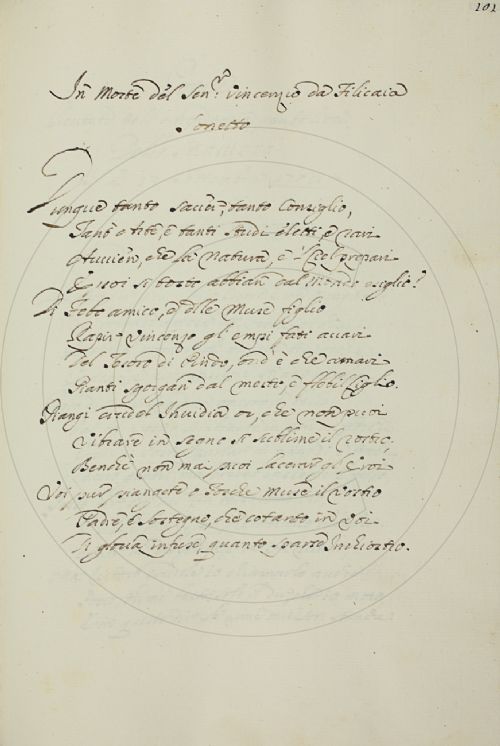 101
In Morte del Sen.r Vincenzio da Filicaia
Sonetto
Dunque tanto saver, tanto Consiglio,
Tant' arte, e tanti studi eletti, e rari
Avvien, che la Natura, e 'l Ciel prepari
E poi si tosto abbian dal Mondo esiglio?
Di Febo amico, e delle Muse figlio
Rapir Vincenzo gl' empi fati avari
Del Tesoro di Pindo, ond' è che amari
Pianti sgorgan dal mesto, e flebil Ciglio.
Piangi Invidia or, che non puoi
Vibrare in segno si sublime il
Benchè non mai puoi lacerar gl' Eroi
Voi pur piangete o Tosche Muse il vostro
Padre, e sostegno, che cotanto in voi
Di gloria infuse, quanto sparse Inchiostro.